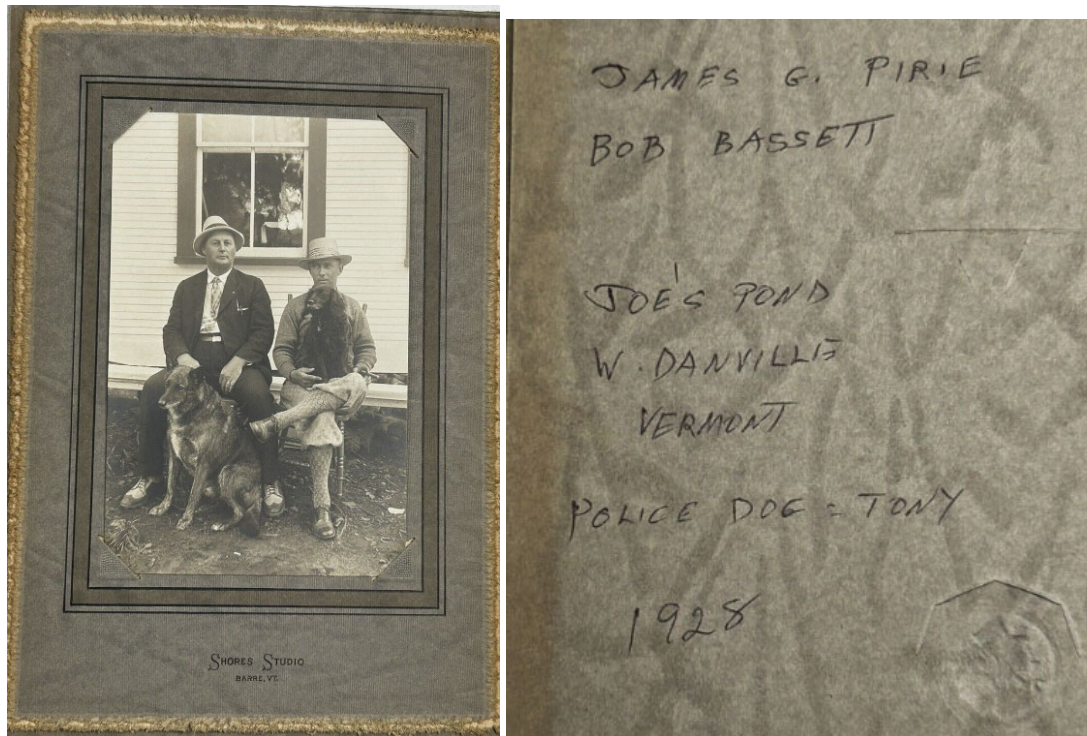 SHORES STUDIO
BARRE, VT.
JAMES G. PIRIE
BOB BASSETT
JOE'S POND
W. DANVILLE
VERMONT
POLICE DOG = TONY
1928